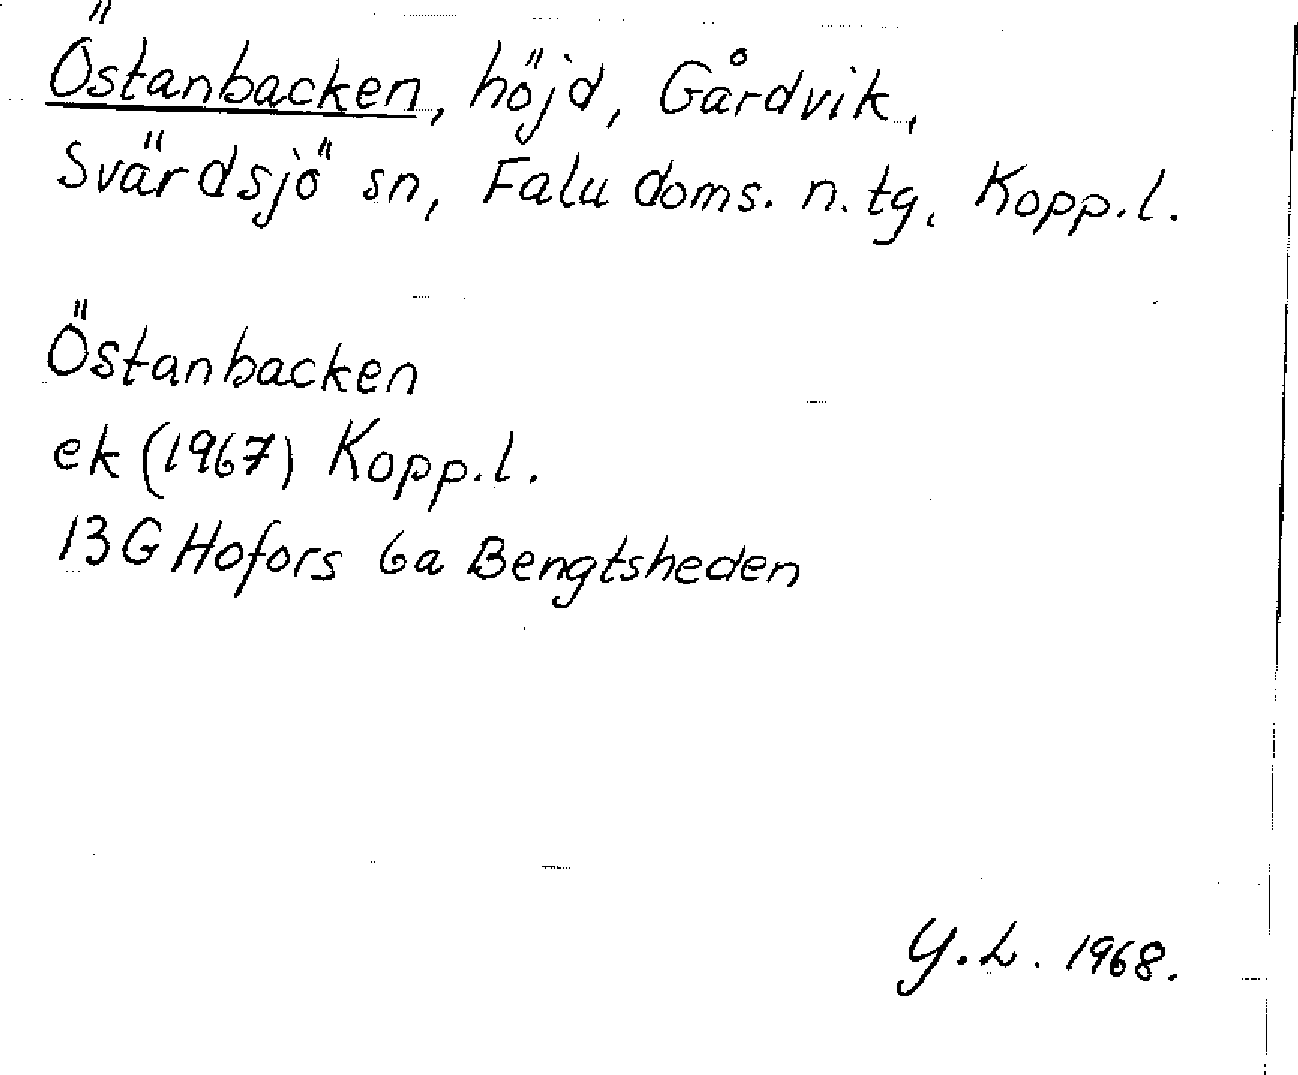 Östanbacken, höjd, Gårdvik,
Svärdsjö sn, Falu doms. n. tg, Kopp.l.
Östanbacken
ek (1967) Kopp.l.
13G Hofors 6a Bengtsheden
Y.L. 1968.